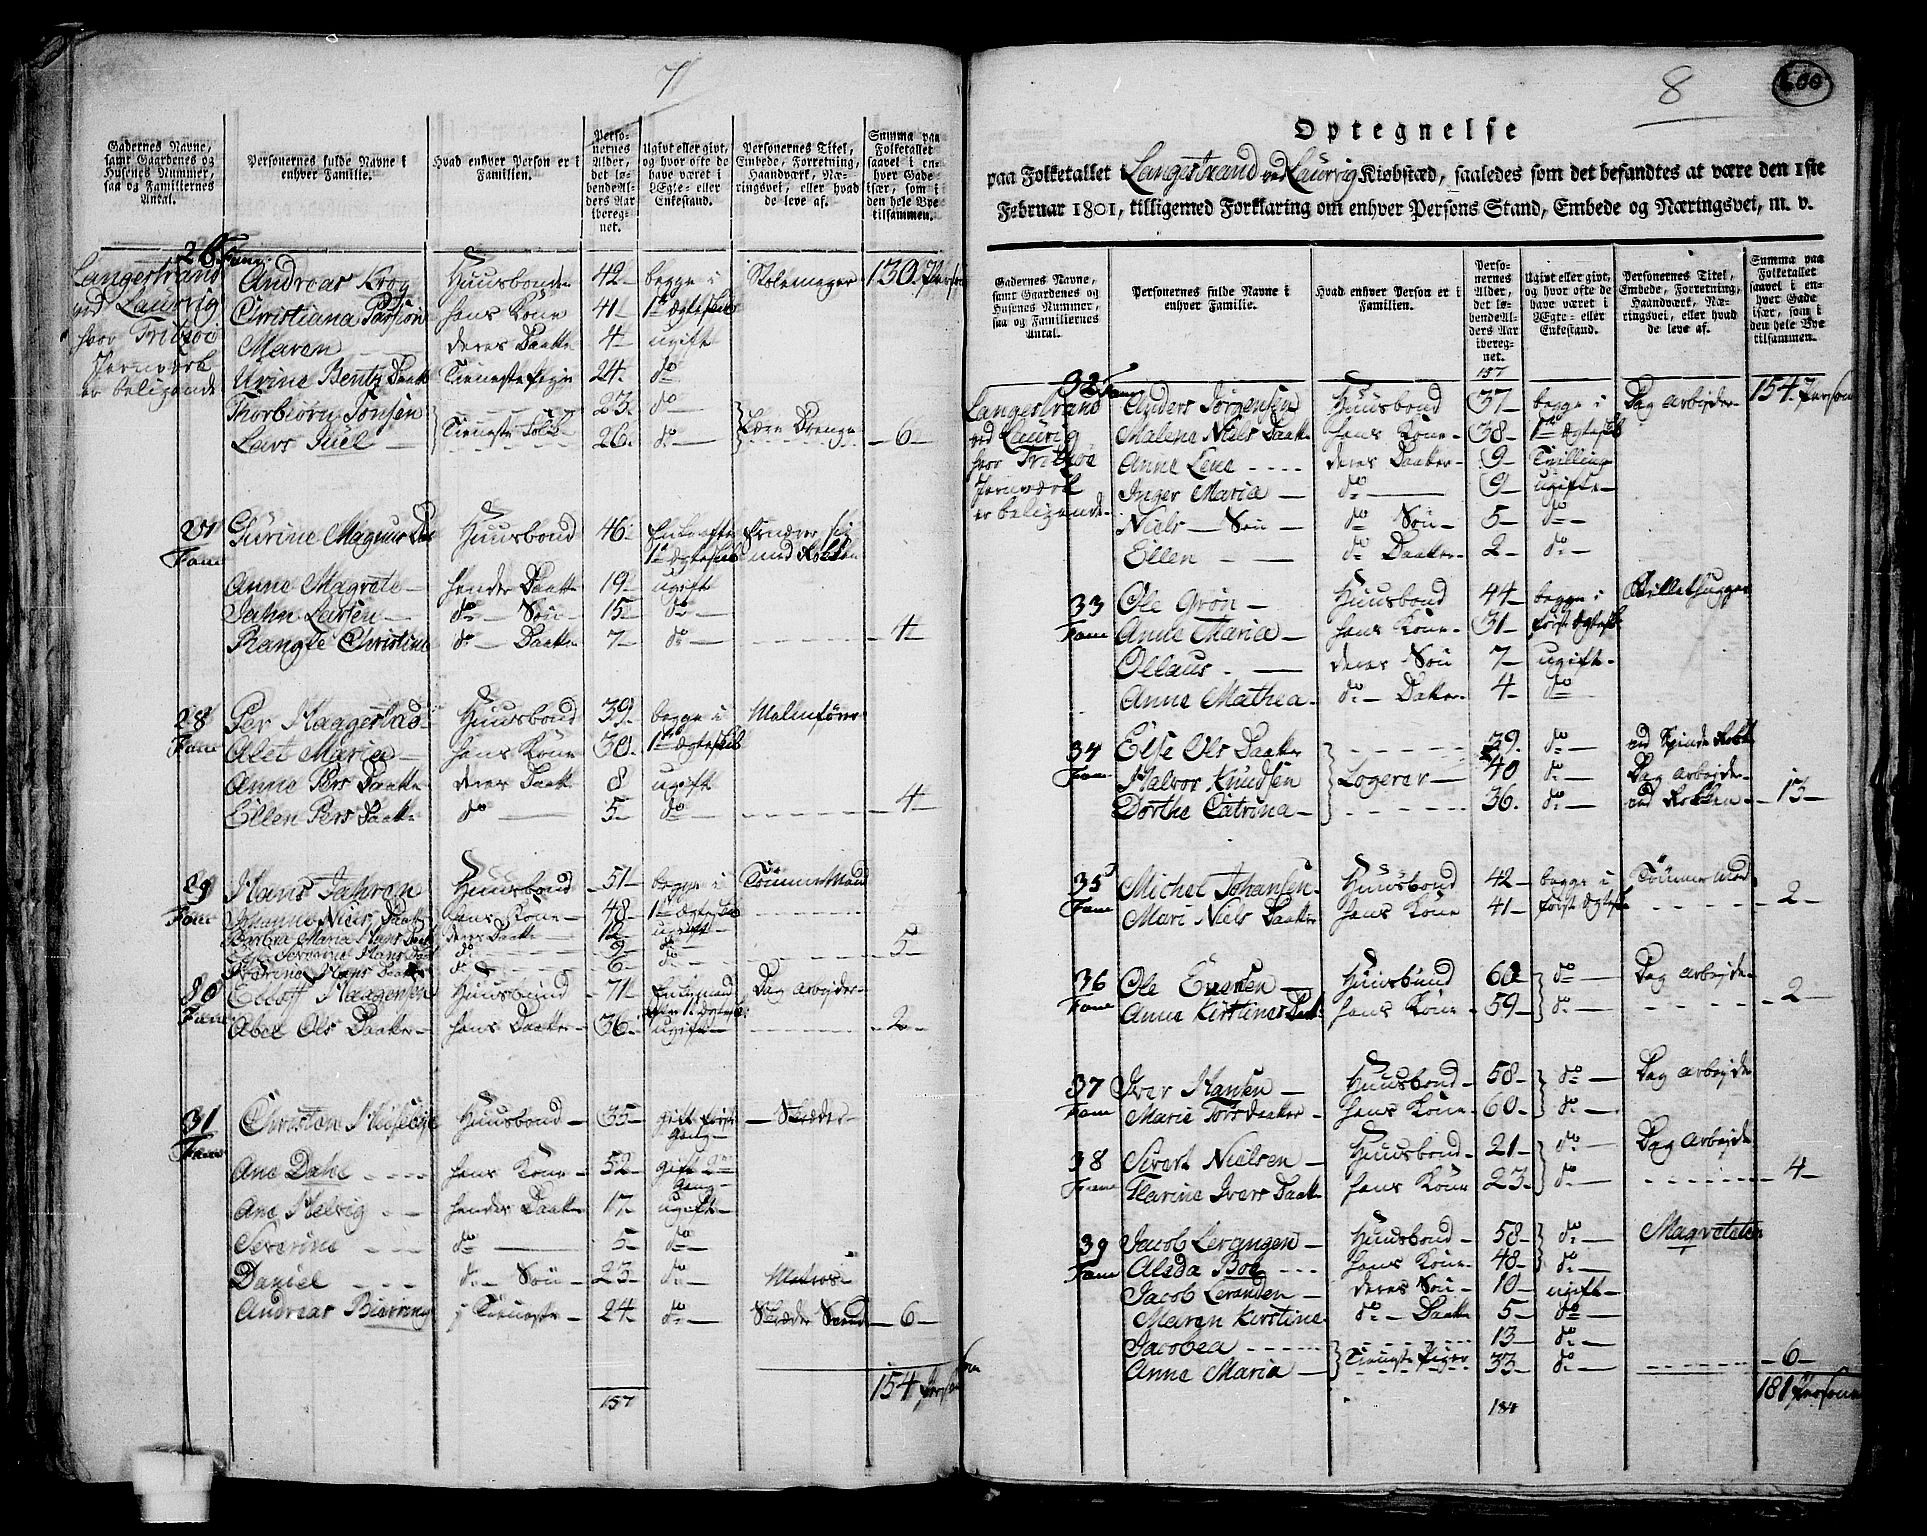 7
Gadernes Navne,
samt Gaardenes og
Husenes Nummer,
saa og Familiernes
Antal.
Personernes fulde Navne i
enhver Familie.
Hvad enhver Person er i
Familien.
Perso-
nernes
Alder,
det lø-
bende Al-
ders Aar
ibereg-
net.
Ugivt eller givt,
og hvor ofte de
have været i
Ægte- eller
Enkestand.
Personernes Titel,
Embede, Forretning,
Haandværk, Næ-
ringsvei, eller hvad
de leve af.
Summa paa
Folketallet
saavel i en-
hver Gade
især, som i
den hele Bye
tilsammen.
Langestrand
ved Laurvig
hvor Fritzøe
Jernværk
er beligende
26 Fam:
Andreas Krog Huusbonde 42 begge i Stolemager 130. Person
Christiana hans Kone 41 1te Ægteskab
Maren deres Daatter 4 ugift
Urine Bentz Daatter Tieneste Pige 24 do
Thorbiørn Tonsen 23 do
Lars Juel Tieneste Folk 26 do Lære Drenge 6
27 Gurine Magnus Daa Huusbond 46 Enke efter Ernærer sig
Fam 1te Ægteskab med Rokken
Anne Magrete hendes Daatter 19 ugift
Jahn Larsen do Søn 15 do
Rangle Christine do Daatter 7 do 4
28 Per Haagestad Huusbond 39 begge i
Fam Alet Maria hans Kone 30 1te Ægteskab
Anne Pers Daatter deres Daatter 8 ugift
Ellen Pers Daatter do 5 do 4
29 Hans Jahran Huusbond 51 begge i Tømmer Mand
Fam Johanne Niels Daatter hans Kone 48 1te Ægteskab
Barbra Maria Hans Daat deres Daatter 12 ugift
Severine Hans Daat do 9 do 5
Hans Daatter do 6 do
30 Elloff Haagensen Huusbond 71 Enkemand Dag arbejder
Fam
Abel Ols Daatter hans Daatter 36 ugift 2
31 Christen Huusbond 35 gift første Skræder
Fam gang
Ane Dahl hans Kone 52 gift 2den
Gang
Ane Helvig hendes Daatter 17 ugift
Severine do 5 do
Daniel do Søn 23 do Matros
Andreas i Tieneste 24 do Skræder Svend 6
157
154 Person
8
600
Optegnelse
paa Folketallet i Langestrand ved Laurvig Kiøbstæd, saaledes som det befandtes at være den 1ste
Februar 1801, tilligemed Forklaring om enhver Persons Stand, Embede og Næringsvei, m. v.
Gadernes Navne,
samt Gaardenes og
Husenes Nummer,
saa og Familiernes
Antal.
Personernes fulde Navne i
enhver Familie.
Hvad enhver Person er i
Familien.
Perso-
nernes
Alder,
det lø-
bende Al-
ders Aar
ibereg-
net.
Ugivt eller givt,
og hvor ofte de
have været i
Ægte- eller
Enkestand.
Personernes Titel,
Embede, Forretning,
Haandværk, Næ-
ringsvei, eller hvad
de leve af.
Summa paa
Folketallet
saavel i en-
hver Gade
især, som i
den hele Bye
tilsammen.
157
Langestrand
ved Laurvig
hvor Fritzøe
Jernværk
er beligende
32 Fam
Anders Jørgensen Huusbond 37 begge i Dag arbejder 154 Person
Malene Niels Daatter hans Kone 38 1te Ægteskab
Anne Lene deres Daatter 9 Tvilling
Inger Maria do 9 ugifte
Niels Søn do Søn 5 do
Ellen do Daatter 2 do
33 Ole Grøn Huusbond 44 begge i
Fam Anne Maria hans Kone 31 første Ægtesk
Ollaus deres Søn 7 ugift
Anne Mathea do Dater 4 do
34 Else Ols Daatter 39 do ved Spinde Rokk
Fam Halvor Knudsen Logerer 40 do Dag arbejder
Dorthe Catrina 36 do ved Rokken 13
35 Michel Johansen Huusbond 42 begge i Tømmer Mand
Fam Mari Niels Daatter hans Kone 41 første Ægtesk 2
36 Ole Huusbond 60 do Dag arbejder
Fam Anne Kirstine hans Kone 59 do 2
37 Iver Hansen Huusbond 58 do Dag arbejder
Fam Marie Tors daatter hans Kone 60 do
38 Sivert Nielsen Huusbond 21 do Dag arbejder
Fam Ivers Daatter hans Kone 23 do 4
39 Jacob Levangen Huusbond 58 do
Fam Aleda Boe hans Kone 48 do
Jacob deres Søn 10 ugift
Maren Kirstine do Daatter 5 do
Jacobea 13 do
Anne Maria Tieneste Piger 33 do 6
181 Persone